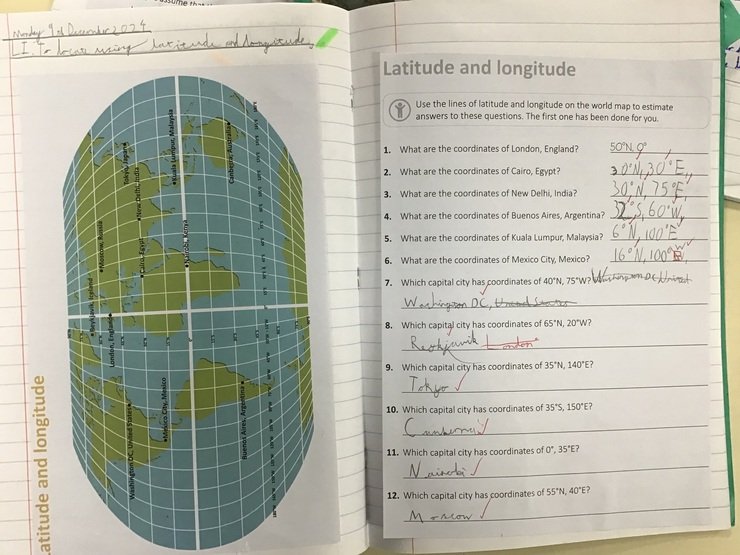 Monday 9th December 2024
LI: To locate using latitude and longitude.
Latitude and longitude
Tokyo, Japan
Kuala Lumpur, Malaysia
Canberra, Australia
New Delhi, India
Moscow, Russia
Cairo, Egypt
Nairobi, Kenya
Reykjavik, Iceland
London, England
Washington DC, United States
Mexico City, Mexico
Buenos Aires, Argentina
Latitude and longitude
Use the lines of latitude and longitude on the world map to estimate
answers to these questions. The first one has been done for you.
1. What are the coordinates of London, England? 50°N, 0°
2. What are the coordinates of Cairo, Egypt? 30°N, 30°E
3. What are the coordinates of New Delhi, India? 30°N 75°E
4. What are the coordinates of Buenos Aires, Argentina? 32°S, 60°W
5. What are the coordinates of Kuala Lumpur, Malaysia? 6°N, 100°E
6. What are the coordinates of Mexico City, Mexico? 16°N, 100°W
7. Which capital city has coordinates of 40°N, 75°W? Washington DC, United
Washington DC, United States
8. Which capital city has coordinates of 65°N, 20°W?
Reokjavik London
9. Which capital city has coordinates of 35°N, 140°E?
Tokyo
10. Which capital city has coordinates of 35°S, 150°E?
Canberra
11. Which capital city has coordinates of 0°, 35°E?
Nairobi
12. Which capital city has coordinates of 55°N, 40°E?
Moscow